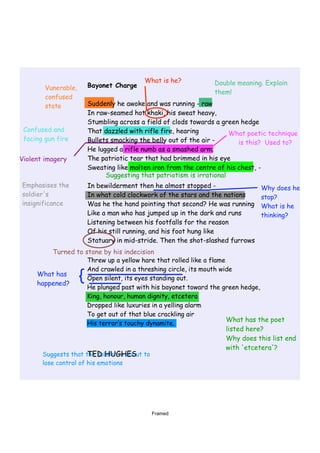 What is he?
Bayonet Charge
Double meaning. Explain
them!
Vunerable,
confused
state
Suddenly he awoke and was running - raw
In raw-seamed hot khaki, his sweat heavy,
Stumbling across a field of clods towards a green hedge
Confused and
facing gun fire
That dazzled with rifle fire, hearing
Bullets smacking the belly out of the air -
What poetic technique
is this? Used to?
He lugged a rifle numb as a smashed arm;
Violent imagery
The patriotic tear that had brimmed in his eye
Sweating like molten iron from the centre of his chest, -
Suggesting that patriotism is irrational
Emphasises the
soldier's
insignificance
In bewilderment then he almost stopped -
In what cold clockwork of the stars and the nations
Was he the hand pointing that second? He was running
Why does he
stop?
What is he
thinking?
Like a man who has jumped up in the dark and runs
Listening between his footfalls for the reason
Of his still running, and his foot hung like
Statuary in mid-stride. Then the shot-slashed furrows
Turned to stone by his indecision
Threw up a yellow hare that rolled like a flame
And crawled in a threshing circle, its mouth wide
What has
happened?
{
Open silent, its eyes standing out.
He plunged past with his bayonet toward the green hedge,
King, honour, human dignity, etcetera
Dropped like luxuries in a yelling alarm
To get out of that blue crackling air
His terror's touchy dynamite.
What has the poet
listed here?
Why does this list end
with 'etcetera'?
TED HUGHES
Suggests that to
lose control of his emotions
Framed